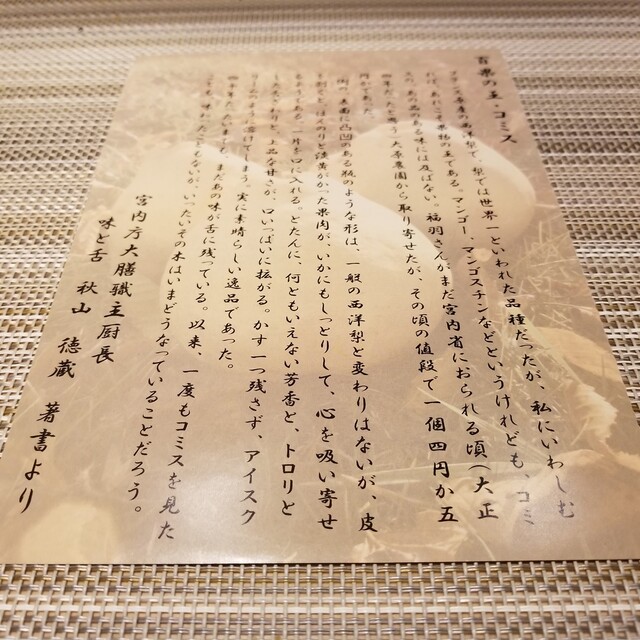 百果の王・コミス
フランス原産の西洋梨で、梨では世界一といわれた品種だったが、私にいわしむ
れば、これこそ果物の王である。マンゴー、マンゴスチンなどというけれども、コミ
スの、あの品のある味には及ばない。福羽さんがまだ宮内省におられる頃（大正
四年だったと思う）大原農園から取り寄せたが、その頃の値段で一個四円か五
円であった。
肉、表面に凸凹のある瓶のような形は、一般の西洋梨と変わりはないが、皮
を割ると、ほんのりと淡黄がかった果肉が、いかにもしっとりして、心を吸い寄せ
るようである。一片を口に入れる。とたんに、何ともいえない芳香と、トロリと
した舌ざわりと、上品な甘さが、口いっぱいに拡がる。かす一つ残さず、アイスク
リームのように溶けてしまう。実に素晴らしい逸品であった。
四十年たったいまでも、まだあの味が舌に残っている。以来、一度もコミスを見た
ことも味わったこともないが、いったいその木はいまどうなっていることだろう。
宮内庁大膳職主厨長
味と舌 秋山 徳蔵 著書より